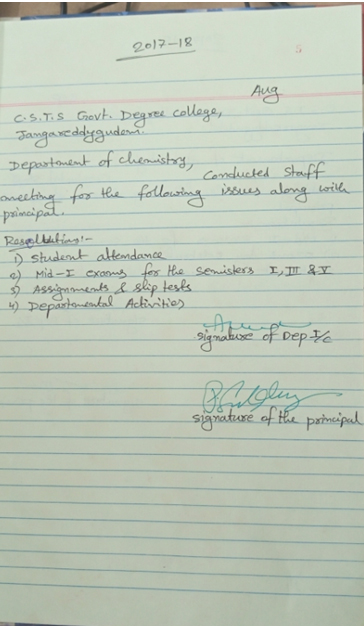 2017-18
5
Aug
C.S.T.S Govt. Degree college,
Jangareddygudem.
Department of chemistry,
Conducted staff
meeting for the following issues along with
principal.
Resolutions:-
1) Student attendance
2) Mid-I exams for the semisters I, III & V
3) Assignments & slip tests
4) Departmental Activities
signature of Dep I/c
signature of the principal